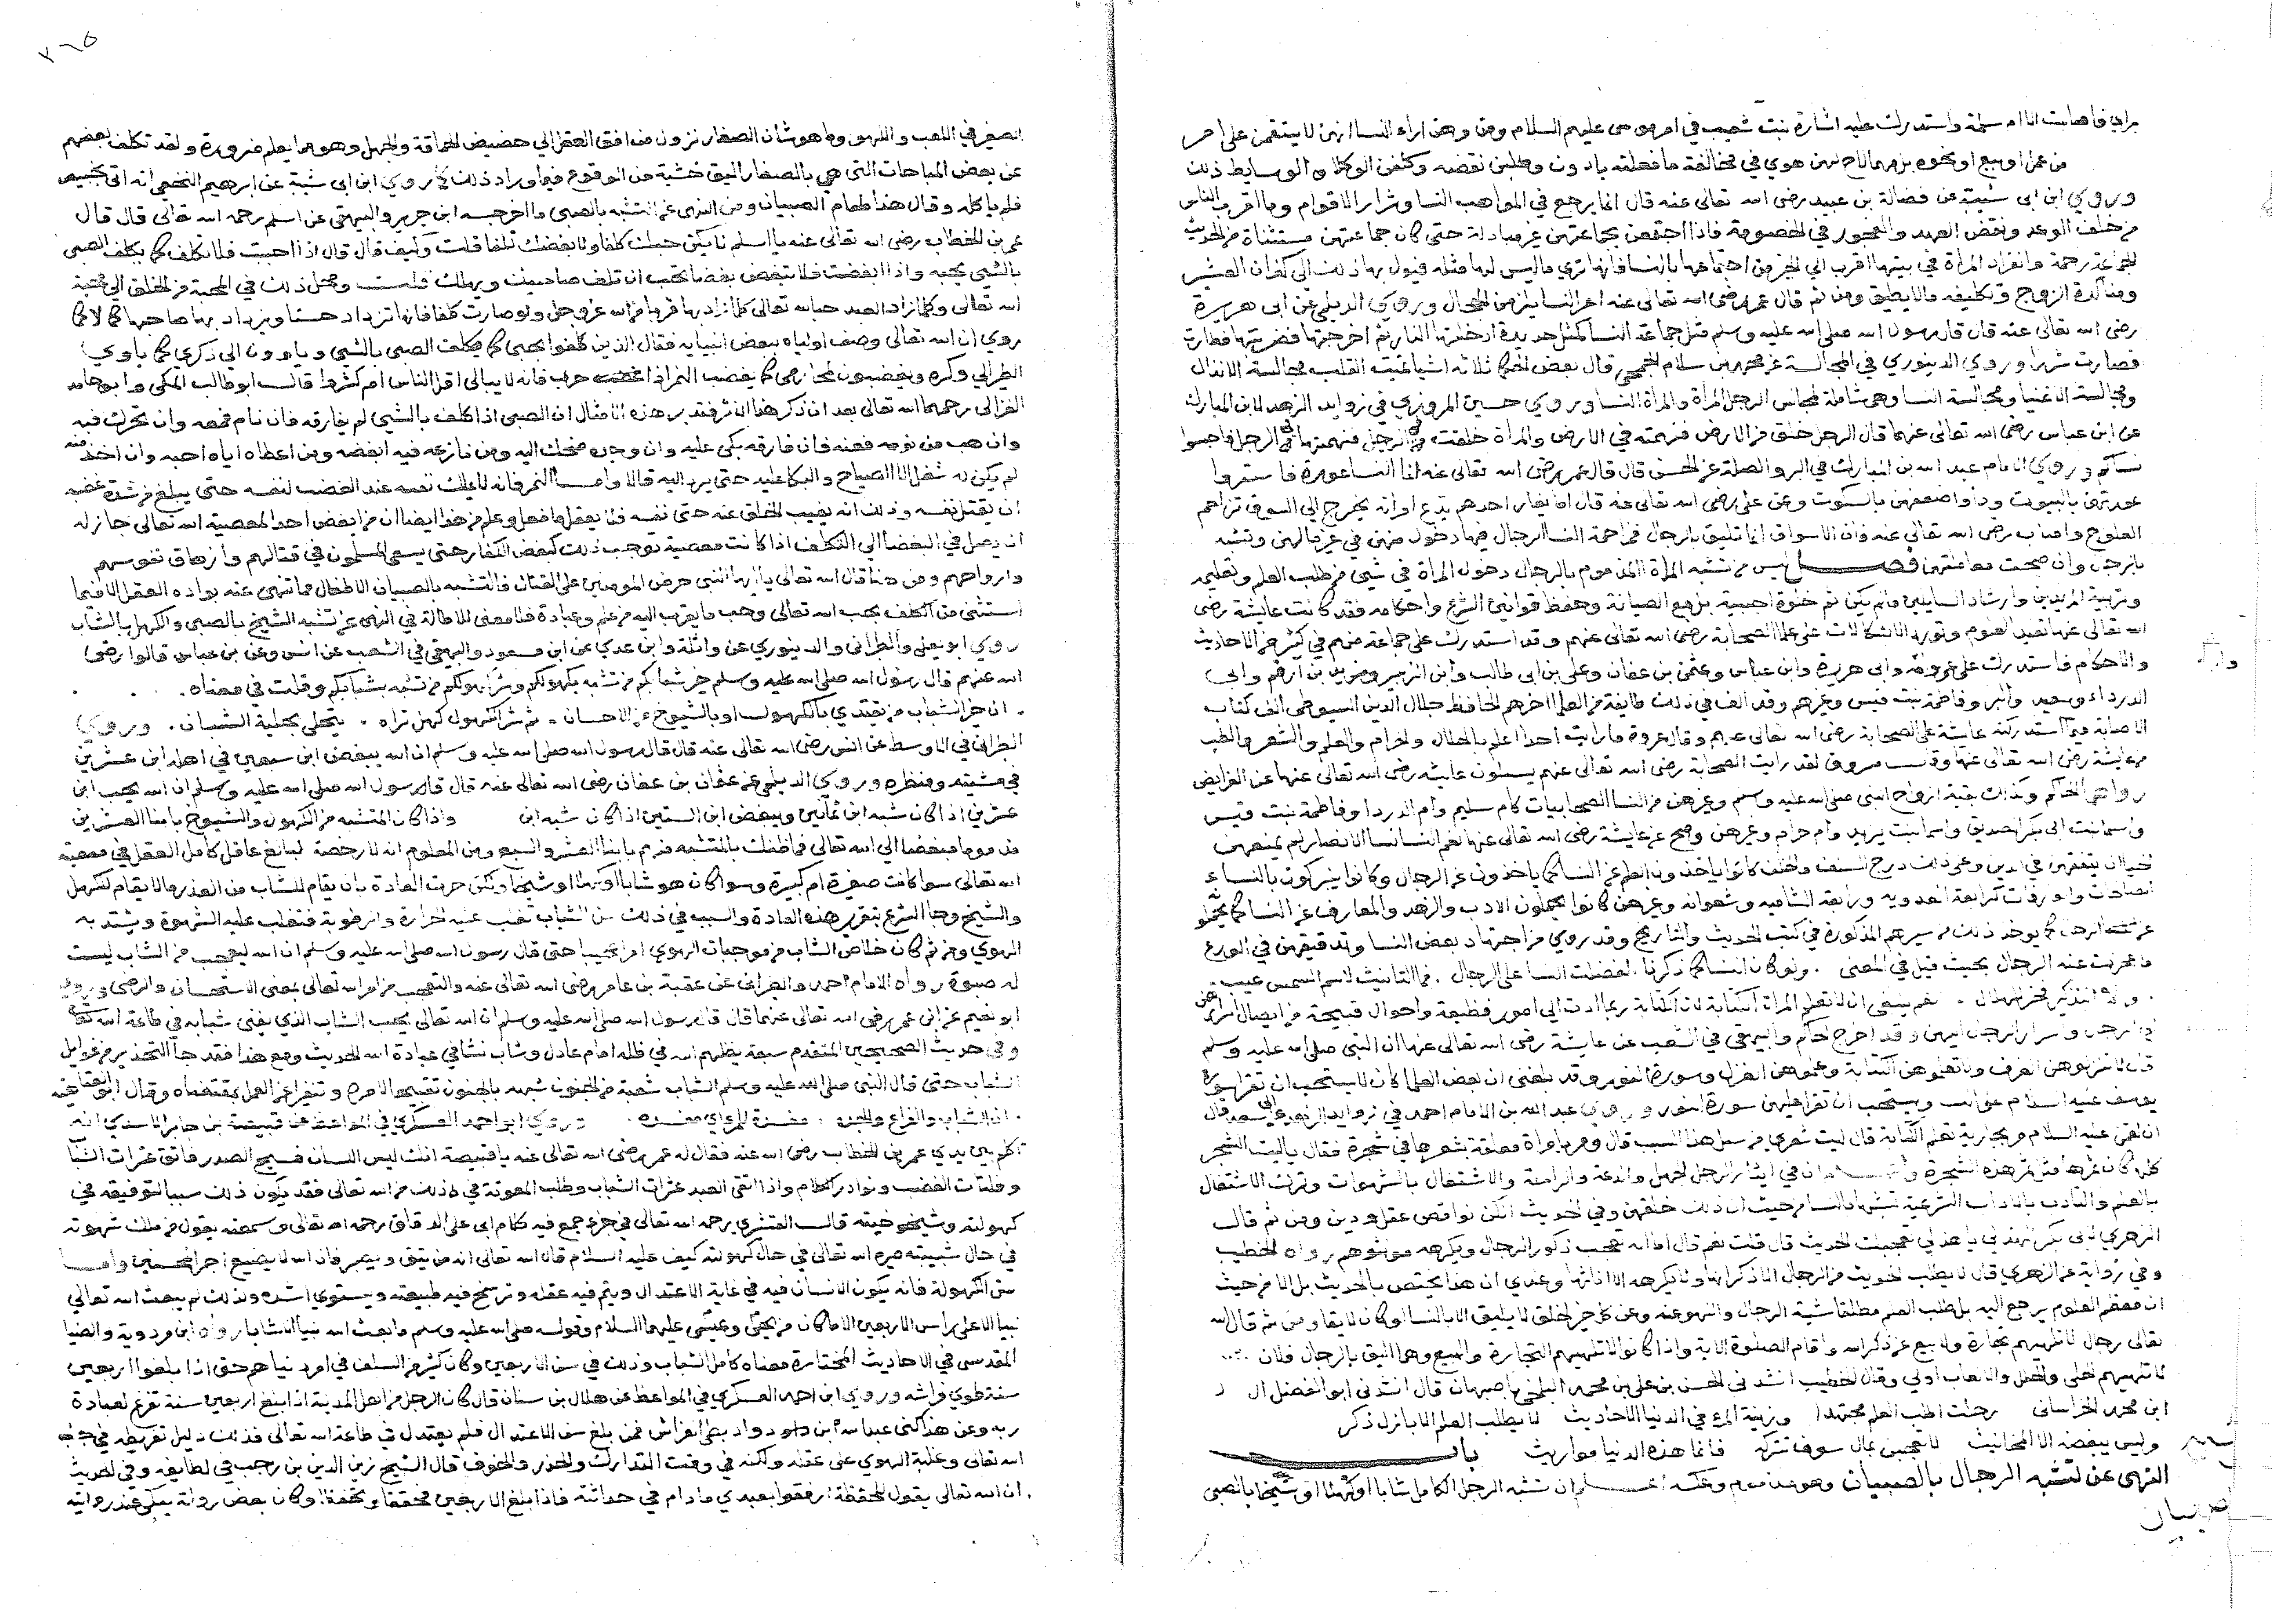 برايها فاصابت الا ام سلمة واستدركت عليه اشارة بنت شعيب في امر موسى عليهم السلام ومن وهن اراء النسا انهن لا يستقمن على امر
من عمل او بيع او نحوه بل مهما لاح لهن هوى في مخالفة ما فعلته بادرن وطلبن نقضه وكلفن الوكلا والوسايط ذلك
وروي ابن ابي شيبة عن فضالة بن عبيد رضي الله تعالى عنه قال انما يرجع في المواهب النسا وشرار الاقوام وما اقرب الناس
من خلف الوعد ونقض العهد والفجور في الخصومة فاذا اجتمعن بجماعتهن حتى كان جماعتهن مستثناة من الحديث
الجماعة رحمة وانفراد المرأة في بيتها اقرب الى الخير من اجتماعها بالنسا فانها ترى ما ليس لها مثله فيؤل بها ذلك الى كفران العشير
ومناكدة الزوج وتكليفه ما لا يطيق ومن ثم قال عمر رضي الله تعالى عنه النسا يلزمن الحجال وروي الديلمي عن ابي هريرة
رضي الله تعالى عنه قال قال رسول الله صلى الله عليه وسلم مثل جماعة النسا كمثل حديدة ادخلتها النار ثم اخرجتها فضربتها فطارت
فصارت شررا وروي الدينوري في المجالسة عن محمد بن سلام الجمحي قال بعض الحكما ثلاثة اشيا تميت القلب مجالسة الانذال
ومجالسة الاغنيا ومجالسة النسا وهي شاملة لمجالس الرجل المرأة والمرأة النسا وروي حسين المروزي في زوايد الزهد لابن المبارك
عن ابن عباس رضي الله تعالى عنهما قال الرجل خلق من الارض فنهمته في الارض والمرأة خلقت من الرجل فنهمتها في الرجل فاحبسوا
نساكم وروي الامام عبد الله بن المبارك في البر والصلة عن الحسن قال قال عمر رضي الله تعالى عنه انما النسا عورة فاستروا
عورتهن بالبيوت وداووا ضعفهن بالسكوت وعن علي رضي الله تعالى عنه قال اما يغار احدهم يدع امراته تخرج الى السوق تزاحم
العلوج واصاب رضي الله تعالى عنه فان الاسواق انما تليق بالرجال فمزاحمة النسا الرجال فيها دخول منهن في غير مالهن وتشبه
بالرجال وان صحت معاملتهن فصل ليس من تشبه المرأة المذموم بالرجال دخول المرأة في شيء من طلب العلم وتعليمه
وتربية المريدين وارشاد السايلين ما لم يكن ثم خلوة اجنبية بل مع الصيانة وحفظ قوانين الشرع واحكامه فقد كانت عايشة رضي
الله تعالى عنها تفيد العلوم وتورد الاشكالات على علما الصحابة رضي الله تعالى عنهم وقد استدركت على جماعة منهم في كثير من الاحاديث
والاحكام فاستدركت على عمر وابي هريرة وابن عباس وعثمن بن عفان وعلي بن ابي طالب وابن الزبير وزيد بن ارقم وابي
الدرداء وسعيد والبر وفاطمة بنت قيس وغيرهم وقد الف في ذلك طايفة من العلما اخرهم الحافظ جلال الدين السيوطي الف كتاب
الاصابة فيما استدركته عايشة على الصحابة رضي الله تعالى عنهم وقال عروة ما رايت احدا اعلم بالحلال والحرام والعلم والشعر والطب
من عايشة رضي الله تعالى عنها وقال مسروق لقد رايت الصحابة رضي الله تعالى عنهم يسالون عايشة رضي الله تعالى عنها عن الفرايض
رواهما الحاكم وكذلك بقية ازواج النبي صلى الله عليه وسلم وغيرهن من النسا الصحابيات كام سليم وام الدردا وفاطمة بنت قيس
واسما بنت ابي بكر الصديق واسما بنت يزيد وام حرام وغيرهن وصح عن عايشة رضي الله تعالى عنها نعم النسا نسا الانصار لم يمنعهن
الحيا ان يتفقهن في الدين وعلى ذلك درج السلف والخلف كانوا ياخذون العلم عن النسا كما ياخذون عن الرجال وكانوا يتبركون بالنساء
الصالحات والعارفات كرابعة العدوية ورابعة الشامية وشعوانة وغيرهن كانوا يحملون الادب والزهد والمعارف عن النسا كما يحملو
عن الرجال كما يوخذ ذلك من سيرهم المذكورة في كتب الحديث والتاريخ وقد روي من اجتهاد بعض النسا وتدقيقهن في الورع
ما عجزت عنه الرجال بحيث قيل في المعنى . ولو كان النسا كما ذكرنا . لفضلت النسا على الرجال . فما التانيث لاسم الشمس عيب
. ولا التذكير فخر للهلال . نعم ينبغي ان لا تعلم المراة الكتابة لان الكتابة ربما ادت الى امور فظيعة واحوال قبيحة من ايصال اسرارهن
الى الرجال واسرار الرجال اليهن وقد اخرج الحاكم والبيهقي في الشعب عن عايشة رضي الله تعالى عنها ان النبي صلى الله عليه وسلم
قال لا تنزلوهن الغرف ولا تعلموهن الكتابة وعلموهن الغزل وسورة النور وقد بلغني ان بعض العلما كان لا يستحب ان تقرا سورة
يوسف عليه السلام عليهن ويستحب ان تقرا عليهن سورة النور وروي عبد الله بن الامام احمد في زوايد الزهد قال
ان لقمن عليه السلام مر بجارية تعلم الكتابة قال ليت شعري قال ومر بامراة معلقة بشعرها في شجرة فقال ياليت الشجر
كله كان ثمرها مثل ثمر هذه الشجرة واعلم ان في ايثار الرجل الجهل والدعة والراحة والاشتغال بالشهوات وترك الاشتغال
بالعلم والتادب بالاداب الشرعية تشبها بالنسا من حيث ان ذلك خلقهن وفي الحديث انكن نواقص عقل ودين ومن ثم قال
الزهري لابي بكر الهذلي يا هذلي تعجبك الحديث قال قلت نعم قال اما انه يحب ذكور الرجال ويكرهه مونثوهم رواه الخطيب
وفي رواية عن الزهري قال لا يطلب الحديث من الرجال الا ذكرانها ولا يكرهه الا اناثها وعندي ان هذا يختص بالحديث بل الامر حيث
ان معظم العلوم يرجع اليه بل طلب العلم مطلقا شبه الرجال واللهو عنه وعن كل خير خلق لا يليق الا بالنسا ومن ثم قال الله
تعالى رجال لا تلهيهم تجارة ولا بيع عن ذكر الله واقام الصلوة الاية واذا كانوا لا تلهيهم التجارة والبيع وهما اليق بالرجال فلان
لا تلهيهم الحلي والحلل والالعاب اولى وقال الخطيب انشدني الحسن بن علي بن محمد البلخي باصبهان قال انشدني ابو الفضل
ابن محمد الخراساني رحلت اطلب العلم مجتهدا وزينة المرء في الدنيا الاحاديث لا يطلب العلم الا بازل ذكر
وليس يبغضه الا المخانيث لا تعجبن بمال سوف تتركه فانما هذه الدنيا مواريث باب
النهي عن تشبه الرجال بالصبيان وهو مذموم اعلم ان تشبه الرجل الكامل شابا او كهلا او شيخا بالصبي
صبيان
الصغير في اللعب واللهو وما هو شان الصغار نزول من افق العقل الى حضيض الحماقة والجهل وهو مما يعلم ضرورة ولقد تكلف بعضهم
عن بعض المباحات التي هي بالصغار اليق خشية من الوقوع فيما وراء ذلك كما روي ابن ابي شيبة عن ابراهيم النخعي انه اتي بخبيص
فلم ياكله وقال هذا طعام الصبيان ومن النهي عن التشبه بالصبي ما اخرجه ابن جرير والبيهقي عن اسلم رحمه الله تعالى قال قال
عمر بن الخطاب رضي الله تعالى عنه يا اسلم لا يكن حبك كلفا ولا بغضك تلفا قلت وكيف قال قال اذا احببت فلا تكلف كما يكلف الصبي
بالشيء يحبه واذا ابغضت فلا تبغض بغضا تحب ان تلف صاحبك ويهلك قلت ومحل ذلك في المحبة من الخلق الى محبة
الله تعالى وكلما زاد العبد حبا لله تعالى كلما زاد بها قربا من الله عز وجل ولو صارت كلفا فانها تزداد حسنا ويزداد بها صاحبها كمالا كما
روي ان الله تعالى وصف اولياه لبعض انبيايه فقال الذين كلفوا بحبي كما يكلف الصبي بالشيء وياوون الى ذكري كما ياوي
الطير الى وكره ويغضبون لمحارمي كما يغضب النمر اذا غضب حرب فانه لا يبالي اقل الناس ام كثروا قال ابو طالب المكي وابو حامد
الغزالي رحمهما الله تعالى بعد ان ذكر هذا الاثر فتدبر هذه الامثال ان الصبي اذا كلف بالشيء لم يفارقه فان نام فمعه وان تحرك فبه
وان هب من نومه فمعه فان فارقه بكى عليه وان وجده ضحك اليه ومن نازعه فيه ابغضه ومن اعطاه اياه احبه وان اخذ منه
لم يكن له شغل الا الصياح والبكا عليه حتى يرد اليه قالا واما النمر فانه لا يملك نفسه عند الغضب لنفسه حتى يبلغ من شدة غضبه
ان يقتل نفسه وذلك انه يغيب الخلق عنه حتى نفسه فلا يعقل ما فعل وعلم من هذا ايضا ان من ابغض احدا لمعصية الله تعالى جاز له
ان يصل في البغضا الى التكلف اذا كانت معصية توجب ذلك كبغض الكفار حتى يسعى المسلمون في قتالهم وازهاق نفوسهم
وارواحهم ومن هنا قال الله تعالى يا ايها النبي حرض المومنين على القتال فالتشبه بالصبيان الاطفال مما تنهى عنه بواده العقل الا فيما
استثني من الكلف بحب الله تعالى وحب ما يقرب اليه من علم وعبادة فلا معنى للاطالة في النهي عن تشبه الشيخ بالصبي والكهل بالشاب
روي ابو يعلى والطبراني والدينوري عن واثلة وابن عدي عن ابن مسعود والبيهقي في الشعب عن انس وعن بن عباس قالوا رضي
الله عنهم قال رسول الله صلى الله عليه وسلم خير شبابكم من تشبه بكهولكم وشر كهولكم من تشبه بشبابكم وقلت في معناه .
. ان خير الشباب من يقتدي بالكهول او بالشيوخ في الاحسان . ثم شر الكهول كهل تراه . يتحلى بحلية الشبان . وروي
الطبراني في الاوسط عن انس رضي الله تعالى عنه قال قال رسول الله صلى الله عليه وسلم ان الله يبغض ابن سبعين في اهله ابن عشرين
في مشيته ومنظره وروي الديلمي عن عثمان بن عفان رضي الله تعالى عنه قال قال رسول الله صلى الله عليه وسلم ان الله يحب ابن
عشرين اذا كان شبه ابن ثمانين ويبغض ابن الستين اذا كان شبه ابن واذا كان المتشبه من الكهول والشيوخ بابنا العشرين
مذموما مبغضا الى الله تعالى فما ظنك بالمتشبه منهم بابنا العشر والسبع ومن المعلوم انه لا رخصة لبالغ عاقل كامل العقل في معصية
الله تعالى سوا كانت صغيرة ام كبيرة وسوا كان هو شابا او كهلا او شيخا ولكن جرت العادة بان يقام للشاب من العذر ما لا يقام للكهل
والشيخ وجا الشرع بتقرير هذه العادة والسبب في ذلك سن الشباب تغلب عليه الحرارة والرطوبة فتغلب عليه الشهوة ويشتد به
الهوى ومن ثم كان خلاص الشاب من موجبات الهوى امرا عجيبا حتى قال رسول الله صلى الله عليه وسلم ان الله ليعجب من الشاب ليست
له صبوة رواه الامام احمد والطبراني عن عقبة بن عامر رضي الله تعالى عنه والتعجب من امر الله تعالى بمعنى الاستحسان والرضى وروي
ابو نعيم عن ابن عمر رضي الله تعالى عنهما قال قال رسول الله صلى الله عليه وسلم ان الله تعالى يحب الشاب الذي يفني شبابه في طاعة الله تعالى
وفي حديث الصحيحين المتقدم سبعة يظلهم الله في ظله امام عادل وشاب نشا في عبادة الله الحديث ومع هذا فقد جا التحذير من غوايل
الشباب حتى قال النبي صلى الله عليه وسلم الشباب شعبة من الجنون شبهه بالجنون تقبيحا لامره وتنفيرا عن العمل بمقتضاه وقال ابو العتاهية
. ان الشباب والفراغ والجده . مفسدة للمرء اي مفسده . وروي ابو احمد العسكري في المواعظ عن قبيصة بن جابر الاسدي انه
تكلم بين يدي عمر بن الخطاب رضي الله عنه فقال له عمر رضي الله تعالى عنه يا قبيصة انك لين اللسان فسيح الصدر فاتق عثرات الشباب
وفلتات الغضب ونوادر الكلام واذا اتقى العبد عثرات الشباب وطلب المعونة في ذلك من الله تعالى فقد يكون ذلك سببا لتوفيقه في
كهولته وشيخوخيته قال القشيري رحمه الله تعالى في جزء جمع فيه كلام ابي علي الدقاق رحمه الله تعالى وسمعته يقول من ملك شهوته
في حال شبيبته صيره الله تعالى في حال كهولته كيوسف عليه السلام قال الله تعالى انه من يتق ويصبر فان الله لا يضيع اجر المحسنين واما
سن الكهولة فانه يكون الانسان فيه في غاية الاعتدال ويتم فيه عقله وترسخ فيه طبيعته ويستوي اشده ولذلك لم يبعث الله تعالى
نبيا الا على راس الاربعين الا ما كان من يحيى وعيسى عليهما السلام وقوله صلى الله عليه وسلم ما بعث الله نبيا الا شابا رواه ابن مردوية والضيا
المقدسي في الاحاديث المختارة معناه كامل الشباب وذلك في سن الاربعين وكان كثير من السلف في امر دنياهم حتى اذا بلغوا اربعين
سنة طوي فراشه وروي ابن احمد العسكري في المواعظ عن هلال بن سنان قال كان الرجل من اهل المدينة اذا بلغ اربعين سنة تفرغ لعبادة
ربه وعن هذا كنى عبد الله ابن داود بطي الفراش فمن بلغ سن الاعتدال فلم يعتدل في طاعة الله تعالى فذلك دليل تفريطه في جنب
الله تعالى وغلبة الهوى على عقله ولكنه في وقت التدارك والحذر والخوف قال الشيخ زين الدين بن رجب في لطايفه وفي الحديث
. ان الله تعالى يقول للحفظة ارفقوا بعبدي ما دام في حداثته فاذا بلغ الاربعين حققا وتحفظا وكان بعض رواته يبكي عند روايته